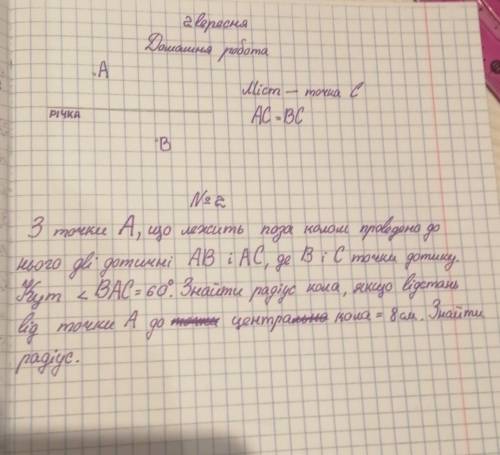 2 вересня
Домашня робота
.A
Міст — точка С
РІЧКА
AC = BC
B
№ 2
З точки А, що лежить поза колом проведено до
нього дві дотичні АВ і АС, де В і С точки дотику.
Кут ∠ BAC = 60°. Знайти радіус кола, якщо відстань
від точки А до точки центрально кола = 8 см. Знайти
радіус.